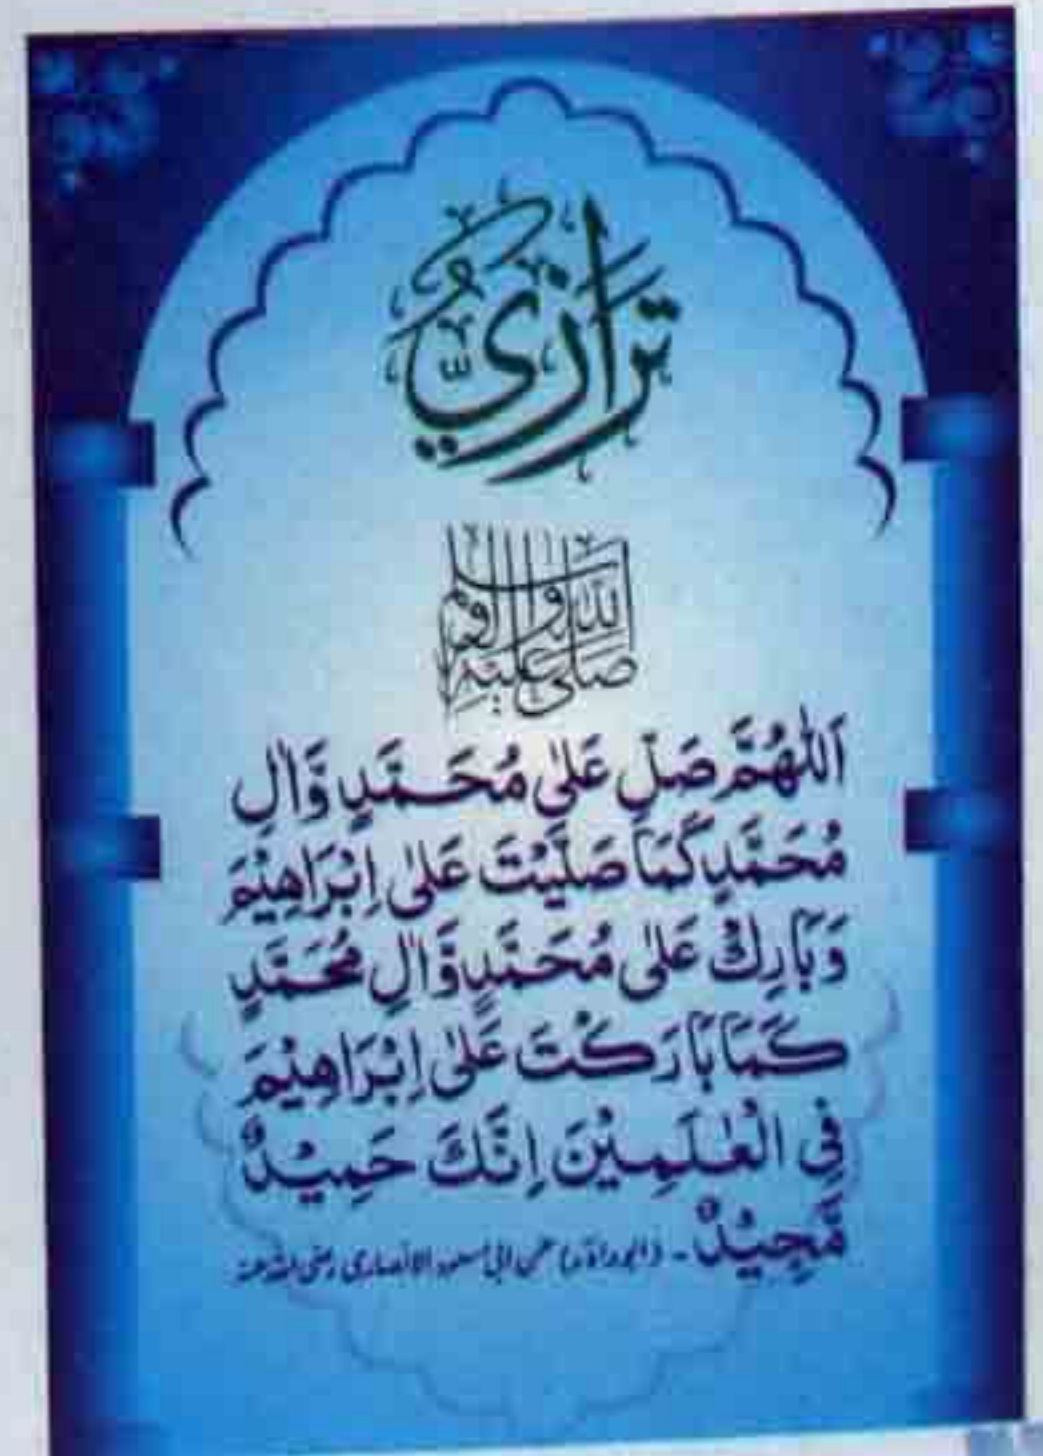 تَرَازِيُّ
صَلَّى اللّٰهُ عَلَيْهِ وَاٰلِهٖ وَسَلَّمَ
اَللّٰهُمَّ صَلِّ عَلٰى مُحَمَّدٍ وَّاٰلِ
مُحَمَّدٍ كَمَا صَلَّيْتَ عَلٰى اِبْرَاهِيْمَ
وَبَارِكْ عَلٰى مُحَمَّدٍ وَّاٰلِ مُحَمَّدٍ
كَمَا بَارَكْتَ عَلٰى اِبْرَاهِيْمَ
فِى الْعٰلَمِيْنَ اِنَّكَ حَمِيْدٌ
مَّجِيْدٌ۔ (ابوداؤد) عن ابی مسعود الانصاری رضی اللہ عنہ